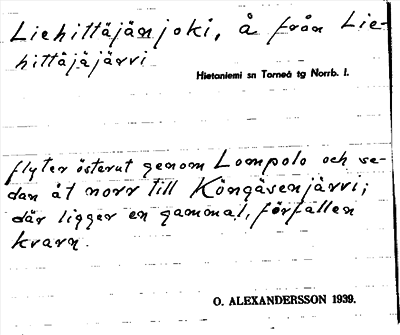 Liehittäjänjoki, å från Lie-
hittäjäjärvi
Hietaniemi sn Torneå tg Norrb. l.
flyter österut genom Lompolo och se-
dan åt norr till Köngäsenjärvi;
där ligger en gammal, förfallen
kvarn.
O. ALEXANDERSSON 1939.